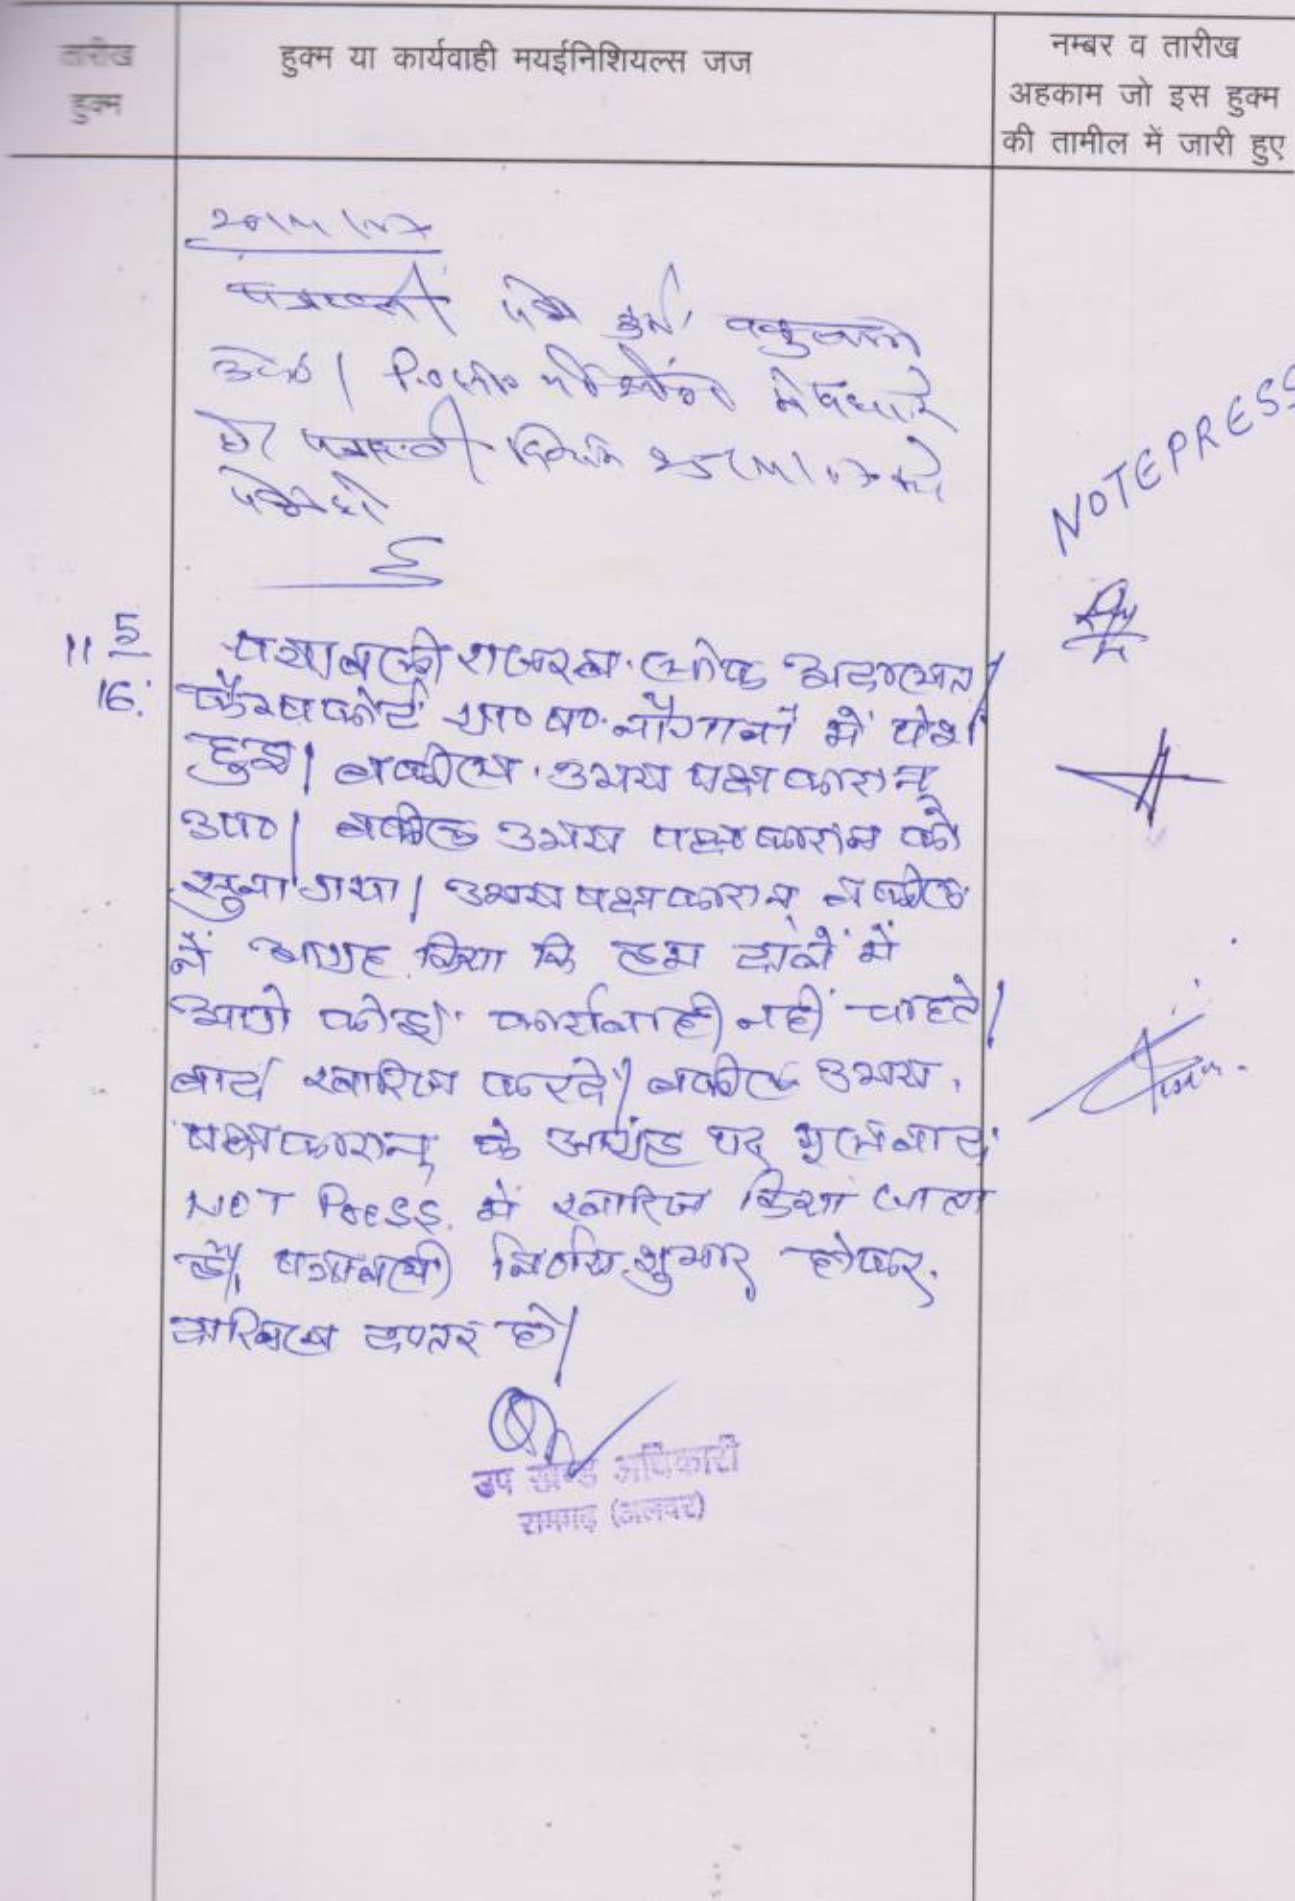 तारीख
हुक्म
हुक्म या कार्यवाही मयईनिशियल्स जज
नम्बर व तारीख
अहकाम जो इस हुक्म
की तामील में जारी हुए
पत्रावली पेश हुई
पेश हो
NOTEPRESS
11 5
16.
पत्रावली राजस्व लोक अदालत
कैम्पकोर्ट ग्रा० प० नौगावां में पेश
हुई। वकील उभय पक्षकारान्
उप०। वकील उभय पक्षकारान को
सुना गया। उभय पक्षकारान् वकील
ने आग्रह किया कि हम दावे में
आगे कोई कार्यवाही नहीं चाहते।
वाद खारिज करदें। वकील उभय
पक्षकारान् के आग्रह पर मूलवाद
NOT Press में खारिज किया जाता
है। पत्रावली निर्णय शुमार होकर
दाखिल दफ्तर हो।
उप खण्ड अधिकारी
रामगढ़ (अलवर)